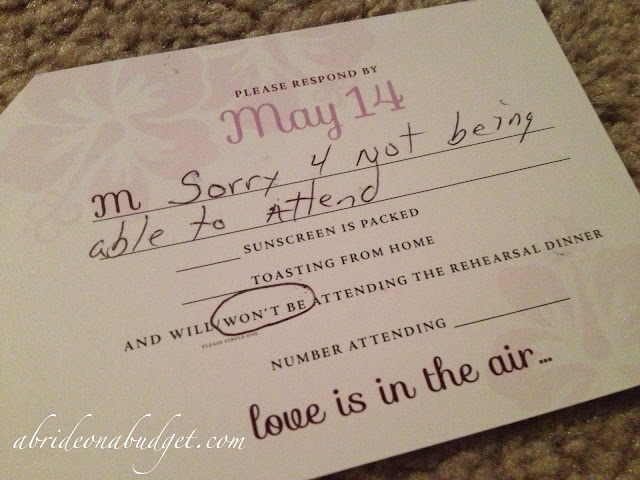 PLEASE RESPOND BY
May 14
M Sorry 4 Not being
able to Attend
SUNSCREEN IS PACKED
TOASTING FROM HOME
AND WILL/WON'T BE ATTENDING THE REHEARSAL DINNER
PLEASE CIRCLE ONE
NUMBER ATTENDING
love is in the air...
abrideonabudget.com